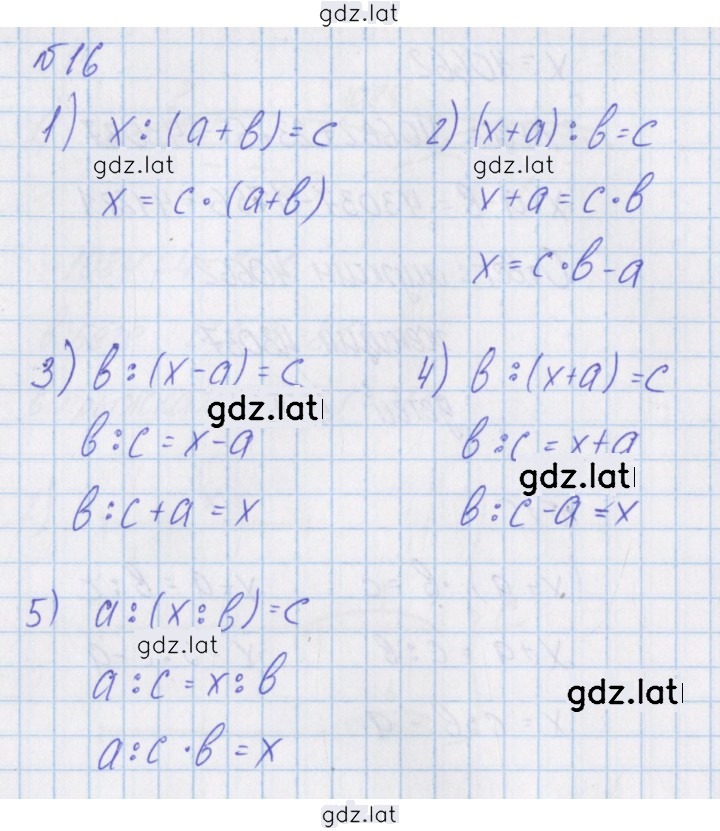 gdz.lat
№16
1) x : (a + b) = c
gdz.lat
x = c · (a+b)
2) (x+a) : b = c
gdz.lat
x + a = c · b
x = c · b - a
3) b : (x - a) = c
gdz.lat
b : c = x - a
b : c + a = x
4) b : (x+a) = c
b : c = x + a
gdz.lat
b : c - a = x
5) a : (x : b) = c
gdz.lat
a : c = x : b
gdz.lat
a : c · b = x
gdz.lat